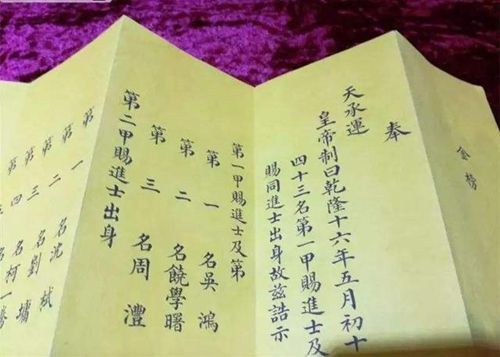 金榜
奉
天承運
皇帝制曰乾隆十六年五月初十
四十三名第一甲賜進士及
賜同進士出身故茲誥示
第一甲賜進士及第
第一名吳鴻
第二名饒學曙
第三名周澧
第二甲賜進士出身
第一名沈栻
第二名劉墉
第三名柯一騰
第四名
第